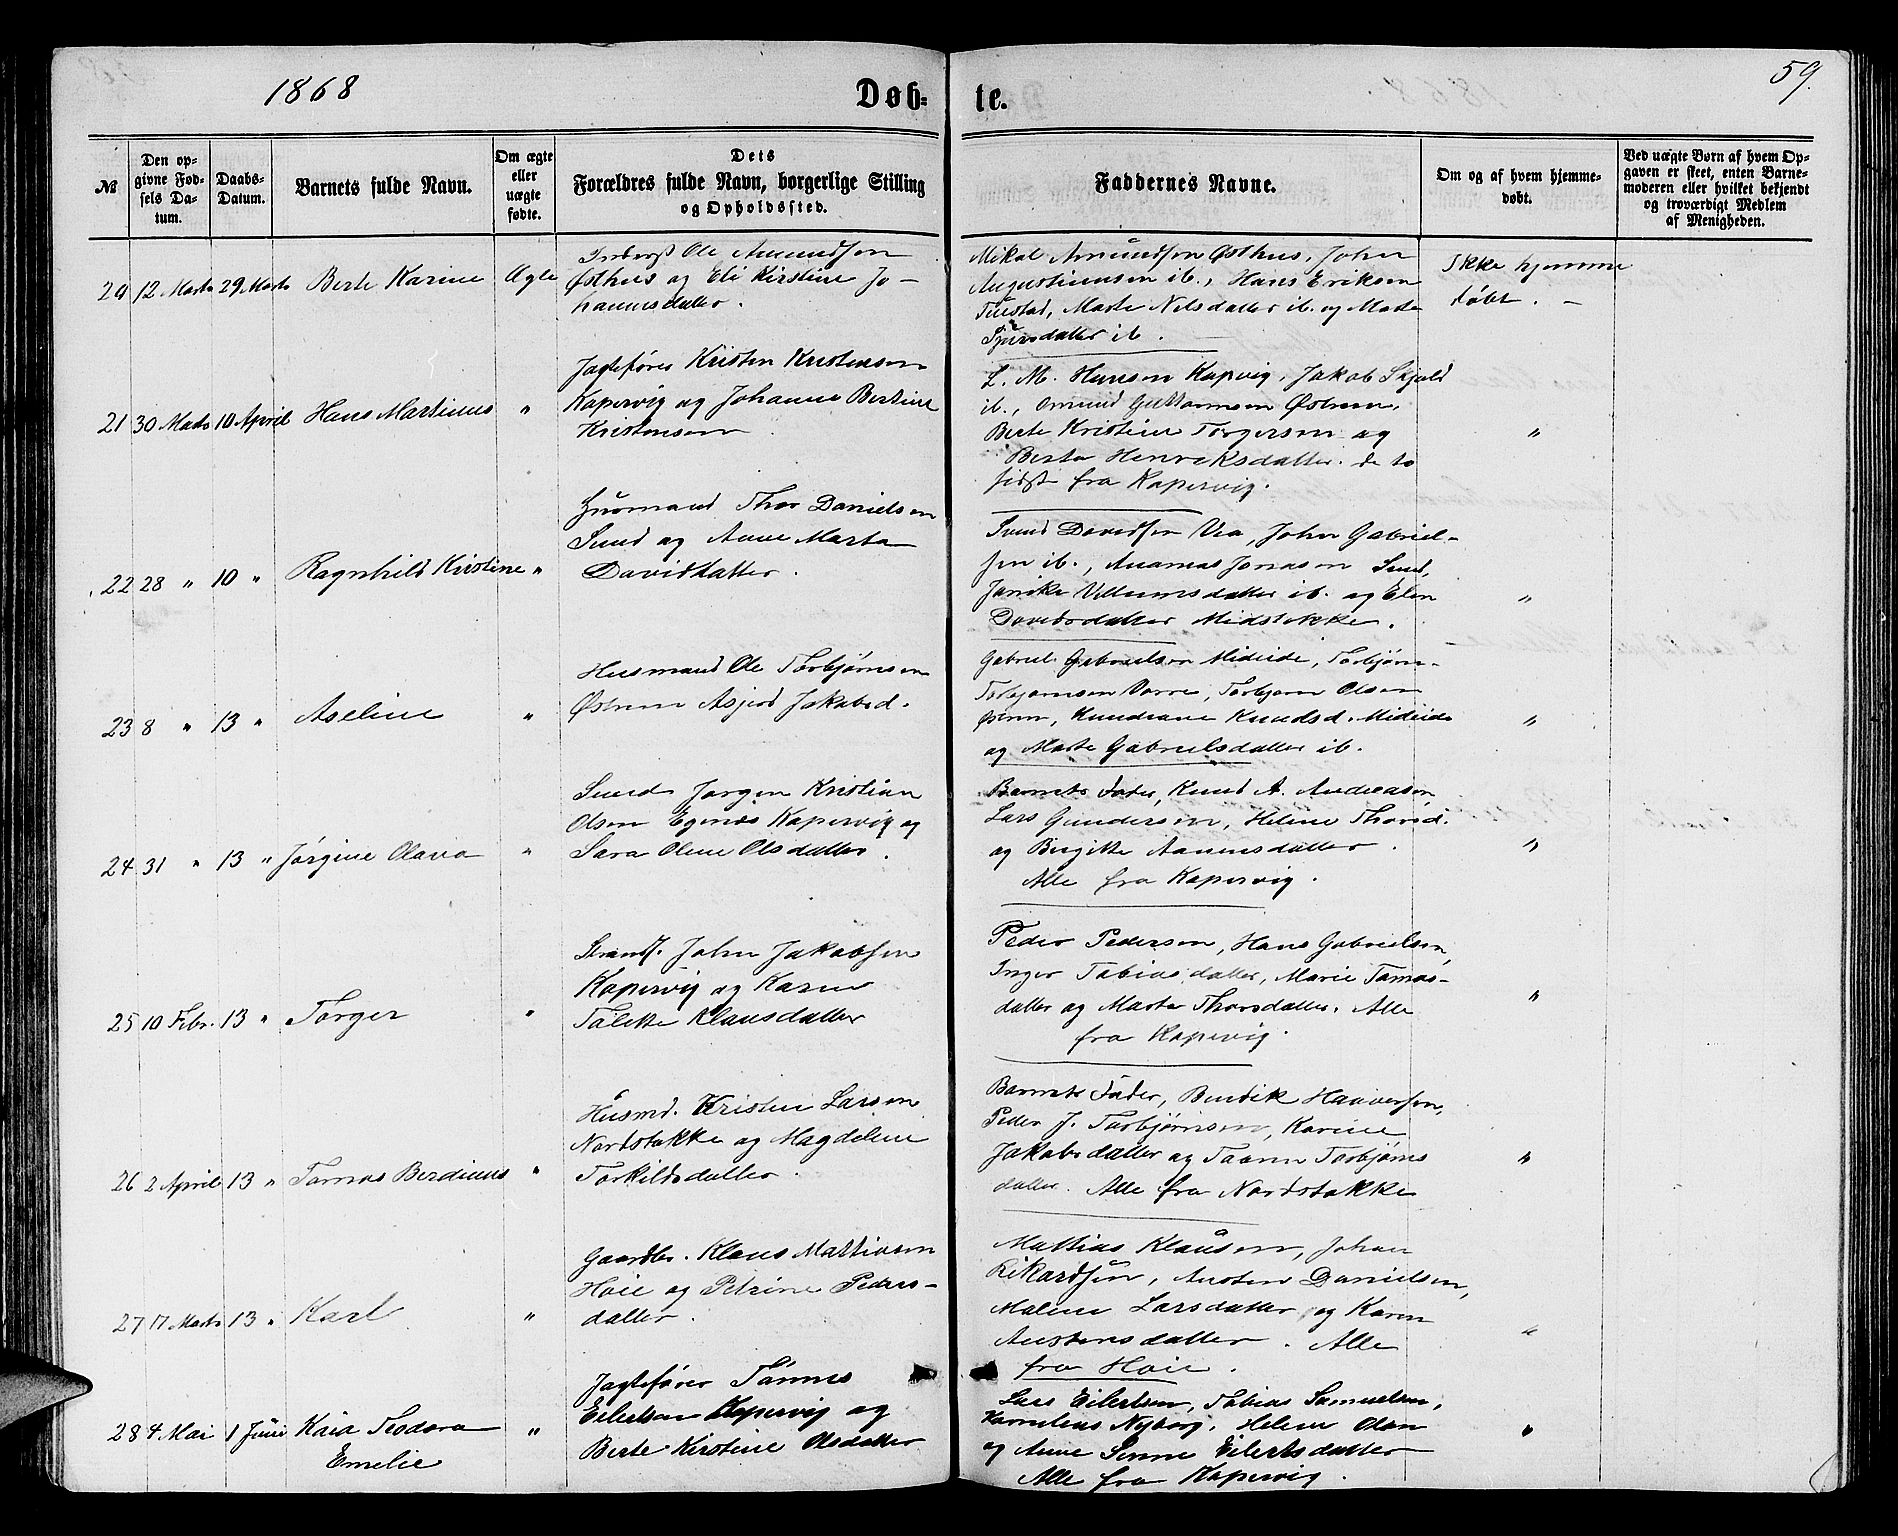 1868
Døb=
te.
59.
№
Den op=
givne Fød=
sels Da=
tum.
Daabs=
Datum.
Barnets fulde Navn.
Om ægte
eller
uægte
fødte.
Dets
Forældres fulde Navn, borgerlige Stilling
og Opholdssted.
Faddernes Navne.
Om og af hvem hjemme=
døbt.
Ved uægte Børn af hvem Op=
gaven er skeet, enten Barne=
moderen eller hvilket bekjendt
og troværdigt Medlem
af Menigheden.
20 12 Marts 29 Marts Berte Karine Ægte
Inderst Ole Amundsen
Østhus og Eli Kirstine Jo-
hannesdatter.
Mikal Amundsen Østhus, John
Augustinusen ib., Hans Eriksen
Marte Nilsdatter ib. og Marte
Sjursdatter ib.
Ikke hjemme
døbt. —
21 30 Marts 10 April Hans Martinus "
Jagtefører Kristen Kristensen
Kopervig og Johanne Bertine
Kristensen
L. M. Hansen Kopvig, Jakob Skjold
ib., Omund Guttormsen Østrem,
Berte Kristine Torgersen og
Berta Henriksdatter. de to
sidst fra Kopervig.
"
22 28 " 10 " Ragnhild Kristine "
Husmand Thor Danielsen
Sund og Anne Marta
Davidsdatter.
Svend Davidsen Vea, John Gabriel-
sen ib., Jonasen Sund,
Janike Villumsdatter ib. og Elen
Davidsdatter Midstokke.
"
23 8 " 13 " Aseline "
Husmand Ole Torbjørnsen
Østrem Asjerd Jakobsd.
Gabriel Gabrielsen Mideide, Torbjørn
Torbjørnsen Vorre, Torbjørn Olsen
Østrem, Knudsd. Mideide
og Marte Gabrielsdatter ib.
"
24 31 " 13 " Jørgine Olava "
Smed Jørgen Kristian
Olsen Egenæs Kopervig og
Sara Oline Olsdatter.
Barnets Fader, Knud A. Andreasen
Lars Gundersen, Helene Thorsd.
og Birgitte Aanensdatter.
Alle fra Kopervig.
"
25 10 Febr. 13 " Torger "
Strands. John Jakobsen
Kopervig og Karen
Talette Klausdatter
Peder Pedersen, Hans Gabrielsen,
Inger Tobiasdatter, Marie Tomas-
datter og Marta Thorsdatter. Alle
fra Kopervig.
"
26 2 April 13 " Tomas Berdinus "
Husmd. Kristen Larsen
Nordstokke og Magdelene
Torkildsdatter.
Barnets Fader, Bendik Haaversen,
Peder J. Torbjørnsen, Karine
Jakobsdatter og Taarn Torbjørns
datter. Alle fra Nordstokke
"
27 17 Marts 13 " Karl "
Gaardbr. Klaus Mattiasen
Hoie og Petrine Peders-
datter.
Mattias Klausen, Johan
Rikardsen, Austen Danielsen,
Malene Larsdatter og Karen
Austensdatter. Alle
fra Hoie.
"
28 4 Mai 1 Juni Kaia Teodora
Emelie "
Jagtefører Tønnes
Eilertsen Kopervig og
Berte Kirstine Olsdatter
Lars Eilertsen, Tobias Samuelsen,
Kornelius Nyborg, Helene Olsen
og Anne Eilertsdatter
Alle fra Kopervig.
"